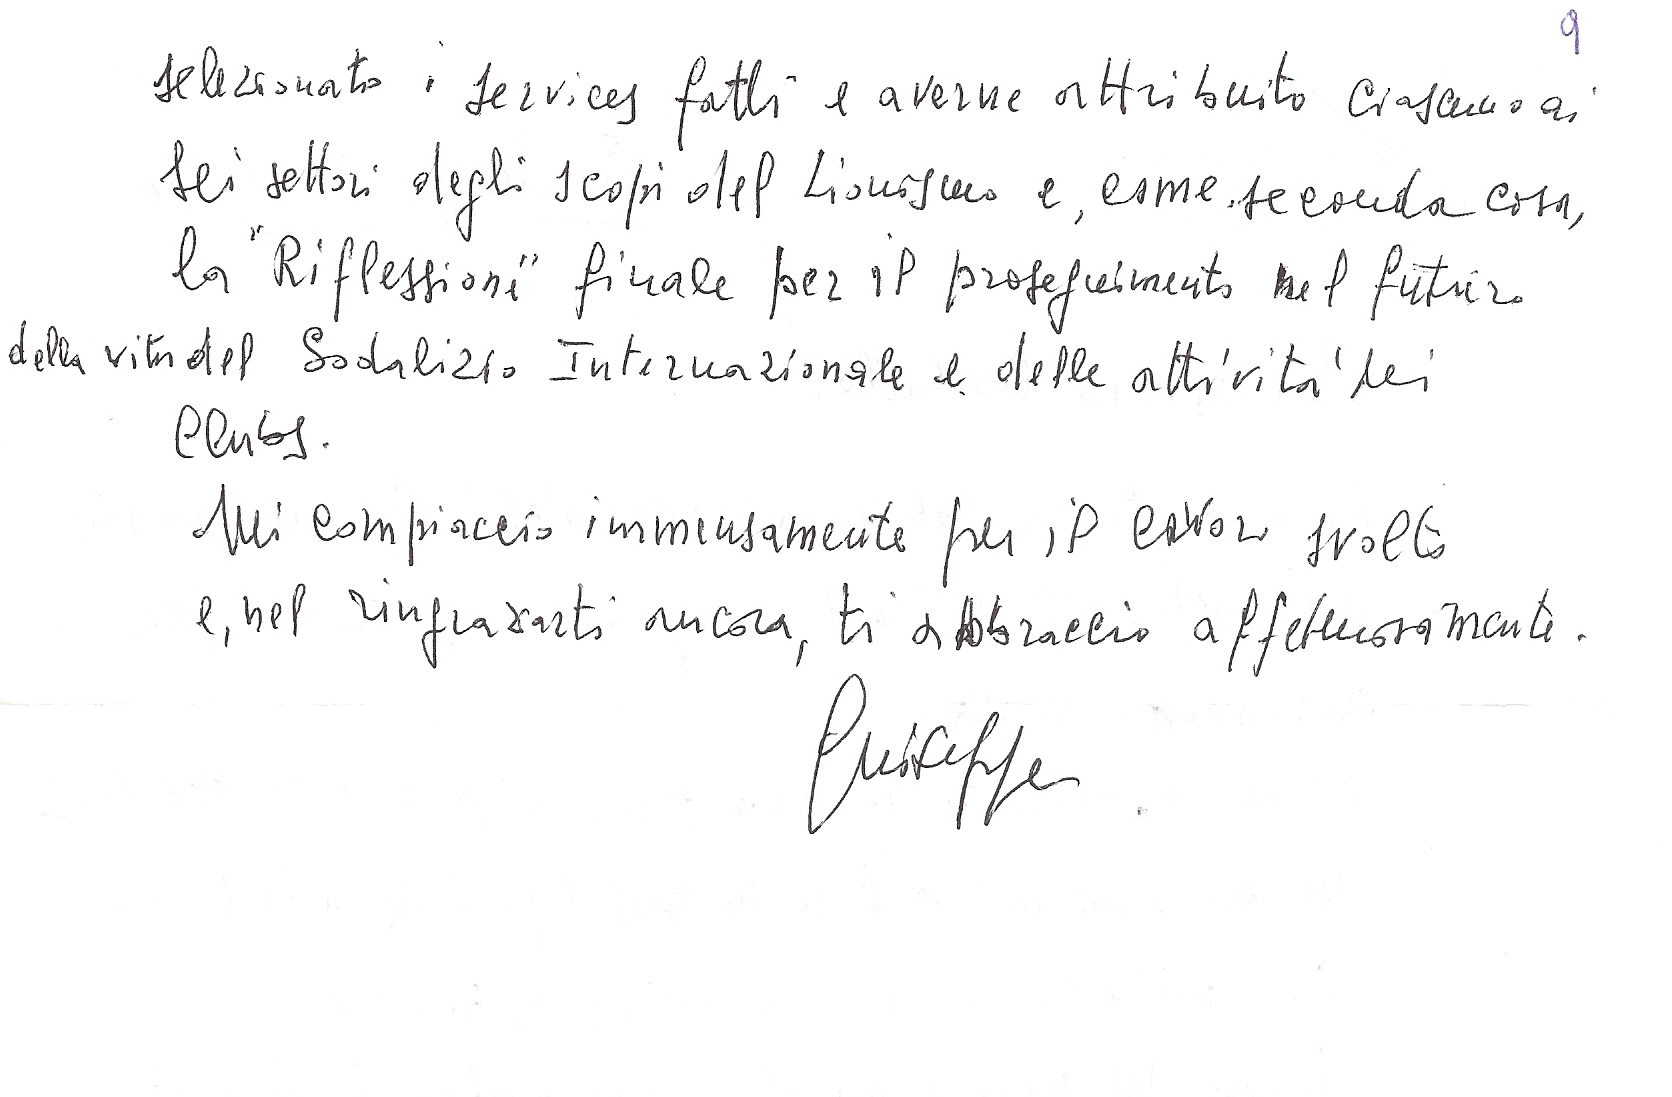 9
selezionato i services fatti e averne attribuito ciascuno ai
sei settori degli scopi del Lionismo e, come seconda cosa,
la "Riflessioni" finale per il proseguimento nel futuro
della vita del Sodalizio Internazionale e delle attività dei
Clubs.
Mi compiaccio immensamente per il lavoro svolto
e, nel ringraziarti ancora, ti abbraccio affettuosamente.
Giuseppe